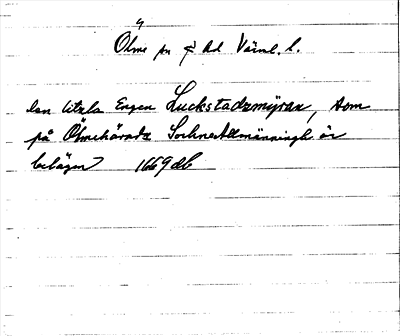 Ölme sn f hd Värml. l.
den litzla Engen Luckstadzmÿran, som
på Ölmehäradz SochneAllmänningh är
belägen 1669 db